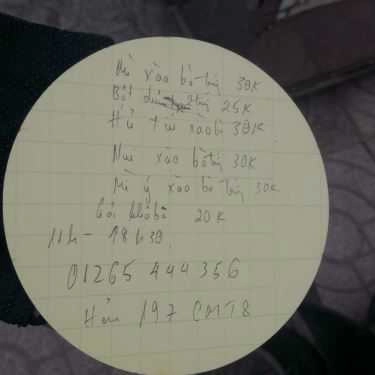 Mì xào bò trứng 30K
Bột chiên trứng 25K
Hủ tíu xào bò 30K
Nui xào bò trứng 30K
Mì ý xào bò trứng 30K
Gỏi khô bò 20K
11h - 18h30
01265 444356
Hẻm 197 CMT8